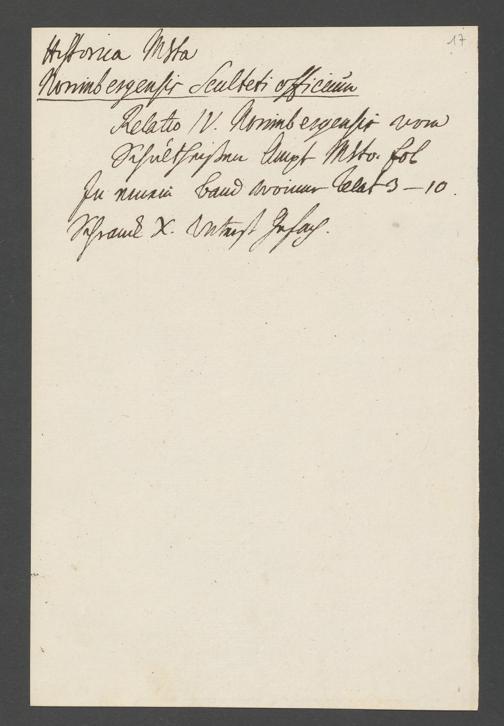 17
Historica Msta
Norimbergensis Sculteti officium
Relatio IV. Norimbergensis vom
Schultheißen Ampt Msto. fol
In einem band worinnen Relat 3-10.
Schranck X. Unterst Gefach.